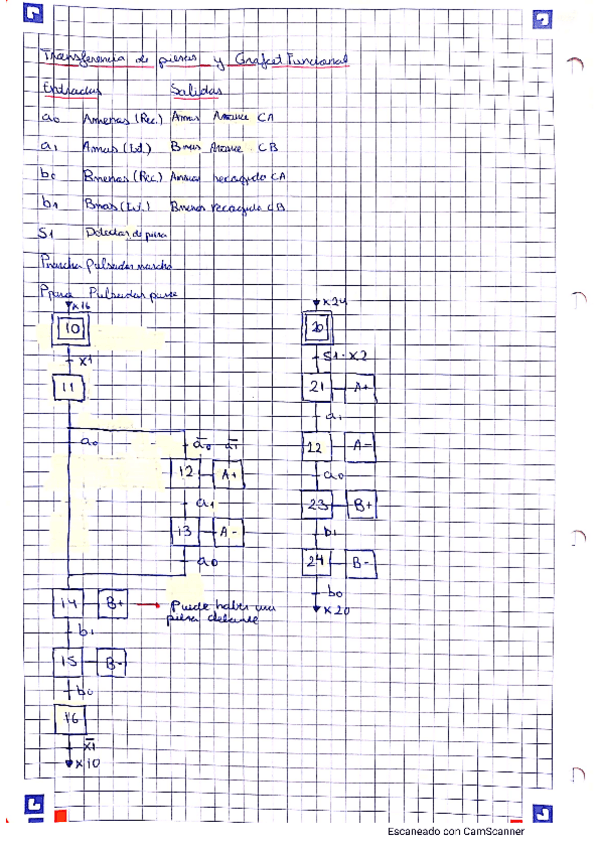 Transferencia de piezas y Grafcet Funcional
Entradas Salidas
a0 Amenos (Rec.) Amas Avance CA
a1 Amas (Ext.) Bmas Avance CB
b0 Bmenos (Rec.) Amenos recogida CA
b1 Bmas (Ext.) Bmenos recogida CB
S1 Detector de pieza
Pmarcha Pulsador marcha
Pparo Pulsador
x16 x24
10 20
x1 S1·x2
11 21 A+
a1
a0 a̅0 a̅1 22 A-
12 A+ a0
a1 23 B+
13 A- b1
a0 24 B-
b0
14 B+ Puede haber una x20
pieza delante
b1
15 B-
b0
16
x̅1
x10
Escaneado con CamScanner